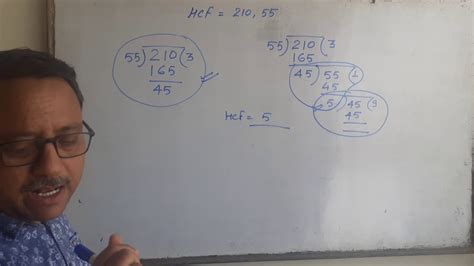 HCF = 210, 55
55)210(3
165
45
55)210(3
165
45)55(1
45
5)45(9
45
HCF = 5